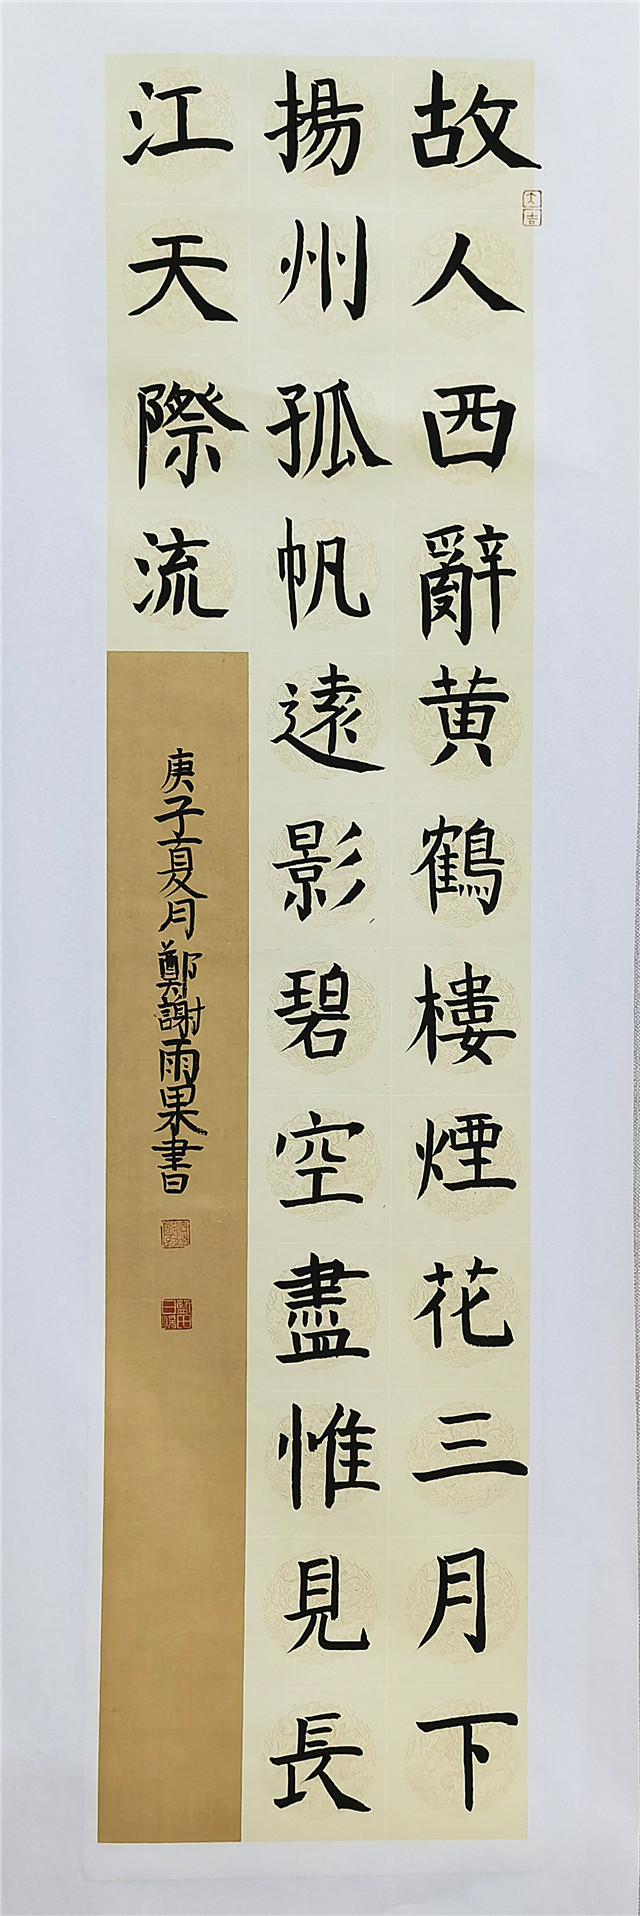 故人西辭黄鶴樓煙花三月下
揚州孤帆遠影碧空盡惟見長
江天際流
庚子夏月鄭謝雨果書
大吉